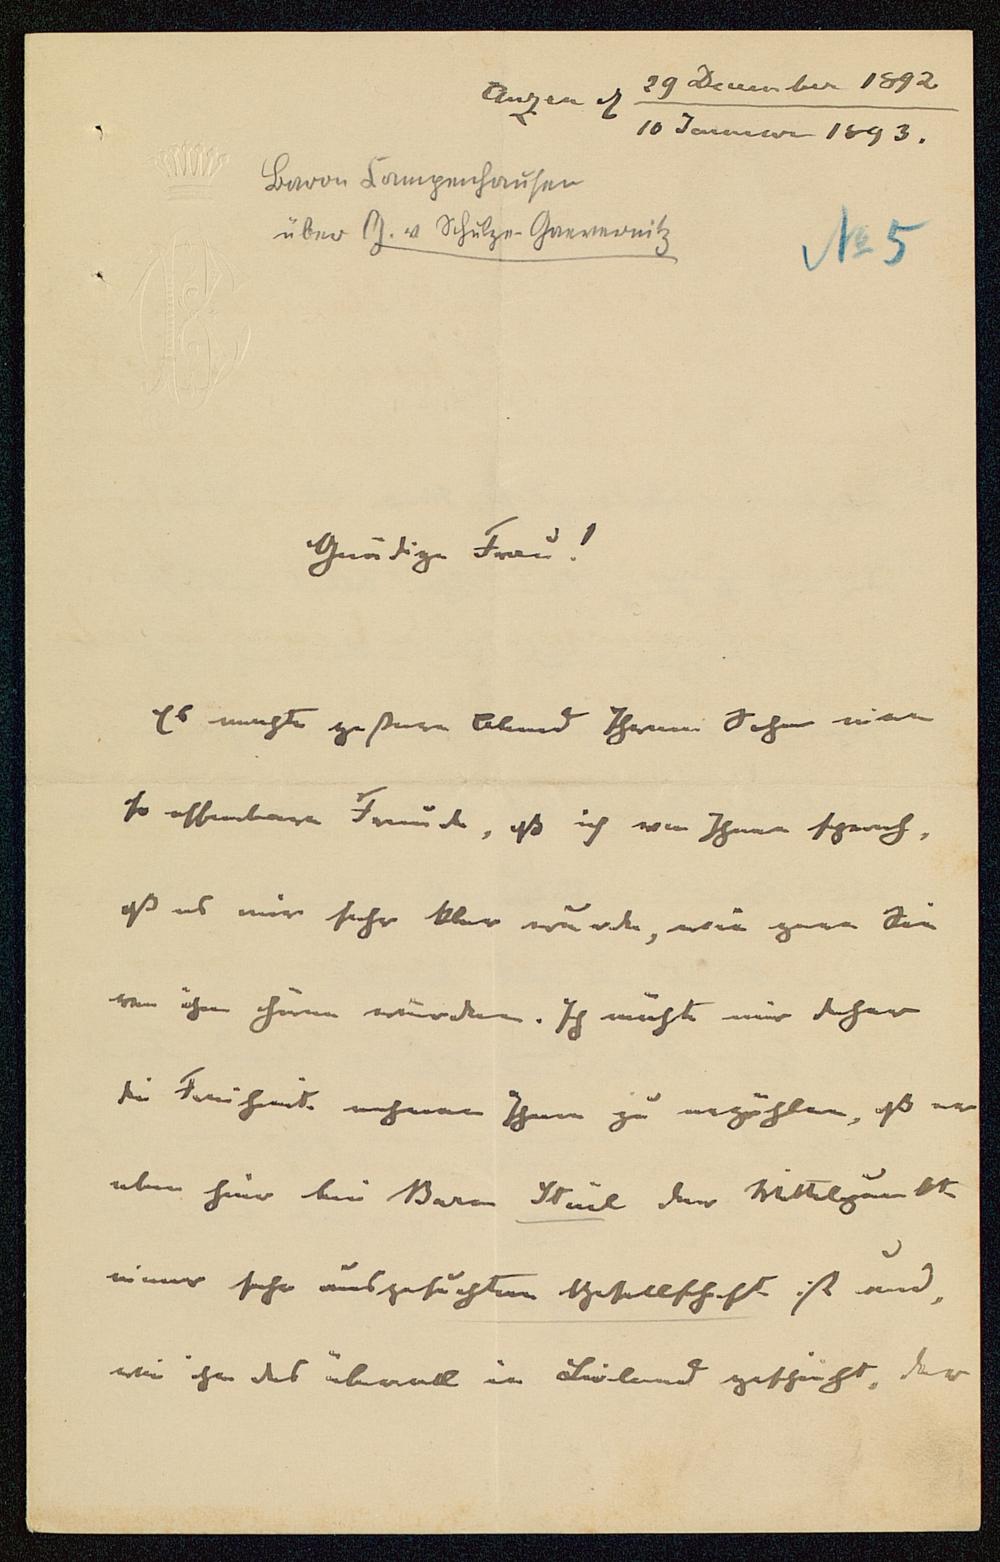 Anzen d 29 December 1892
10 Januar 1893.
Baron Campenhausen
über G. v Schulze-Gaevernitz
№ 5
Gnädige Frau!
Es machte gestern Abend Ihrem Sohn eine
so offenbare Freude, dß ich von Ihnen sprach,
dß es mir sehr klar wurde, wie gern Sie
von ihm hören würden. Ich möchte mir daher
die Freiheit nehmen Ihnen zu erzählen, dß er
eben hier bei Baron Stael der Mittelpunkt
einer sehr ausgesuchten Gesellschaft ist und,
wie ihm das überall in Livland geschieht, der